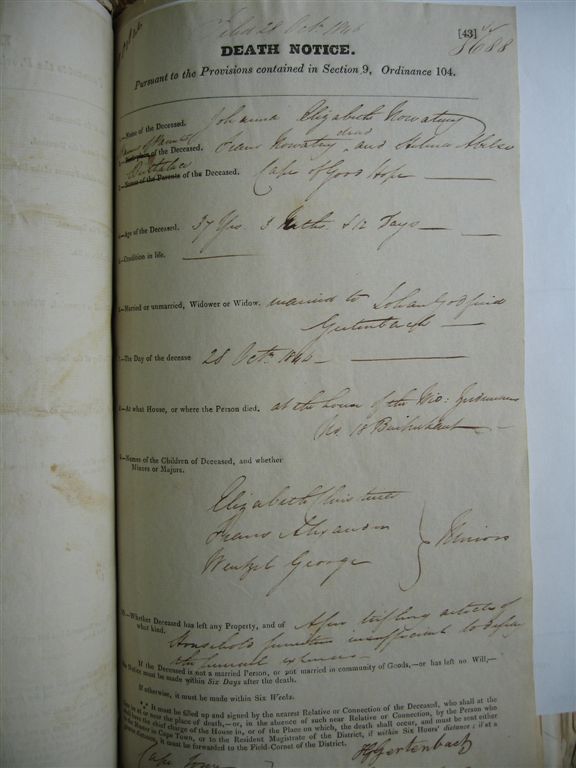 Filed 28 Octr 1846
[43]
5688
DEATH NOTICE.
Pursuant to the Provisions contained in Section 9, Ordinance 104.
—Name of the Deceased. Johanna Elizabeth Nowatny
Names of Parents dead
of the Deceased. Frans Nowatny and
Birthplace
2.—Names of the Parents of the Deceased. Cape of Good Hope
—Age of the Deceased. 37 Yrs. 3 Mths. & 12 Days
—Condition in life.
—Married or unmarried, Widower or Widow. married to Johan Godfried
Gertenbach
—The Day of the decease 28 Octr. 1846
—At what House, or where the Person died. at the house of the Wid:
No. 10
—Names of the Children of Deceased, and whether
Minors or Majors.
Elizabeth
Frans Alexander
Wentzel George
Minors
—Whether Deceased has left any Property, and of
what kind. A few trifling articles of
Household furniture insufficient to defray
the funeral expenses
If the Deceased is not a married Person, or not married in community of Goods,—or has left no Will,—
the Notice must be made within Six Days after the death.
If otherwise, it must be made within Six Weeks.
*** It must be filled up and signed by the nearest Relative or Connection of the Deceased, who shall at the
time be at or near the place of death,—or, in the absence of such near Relative or Connection, by the Person who
shall have the chief charge of the House in, or of the Place on which, the death shall occur, and must be sent either
to the Master in Cape Town, or to the Resident Magistrate of the District, if within Six Hours' distance; if at a
greater distance, it must be forwarded to the Field-Cornet of the District.
Cape Town
Gertenbach